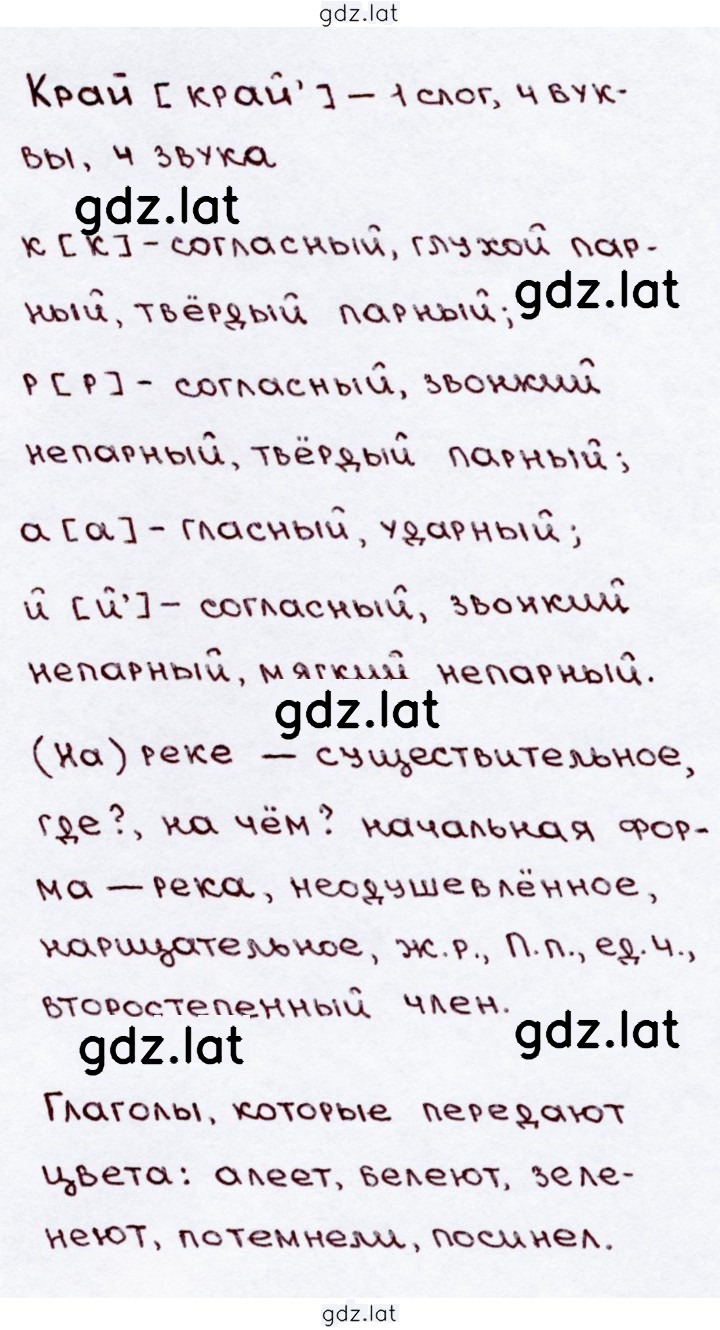 gdz.lat
Край [край'] – 1 слог, 4 бук-
вы, 4 звука
gdz.lat
к [к] – согласный, глухой пар-
gdz.lat
ный, твёрдый парный;
р [р] – согласный, звонкий
непарный, твёрдый парный;
а [а] – гласный, ударный;
й [й'] – согласный, звонкий
непарный, мягкий непарный.
gdz.lat
(На) реке – существительное,
где?, на чём? начальная фор-
ма – река, неодушевлённое,
нарицательное, ж.р., П.п., ед.ч.,
второстепенный член.
gdz.lat
gdz.lat
Глаголы, которые передают
цвета: алеет, белеют, зеле-
неют, потемнели, посинел.
gdz.lat